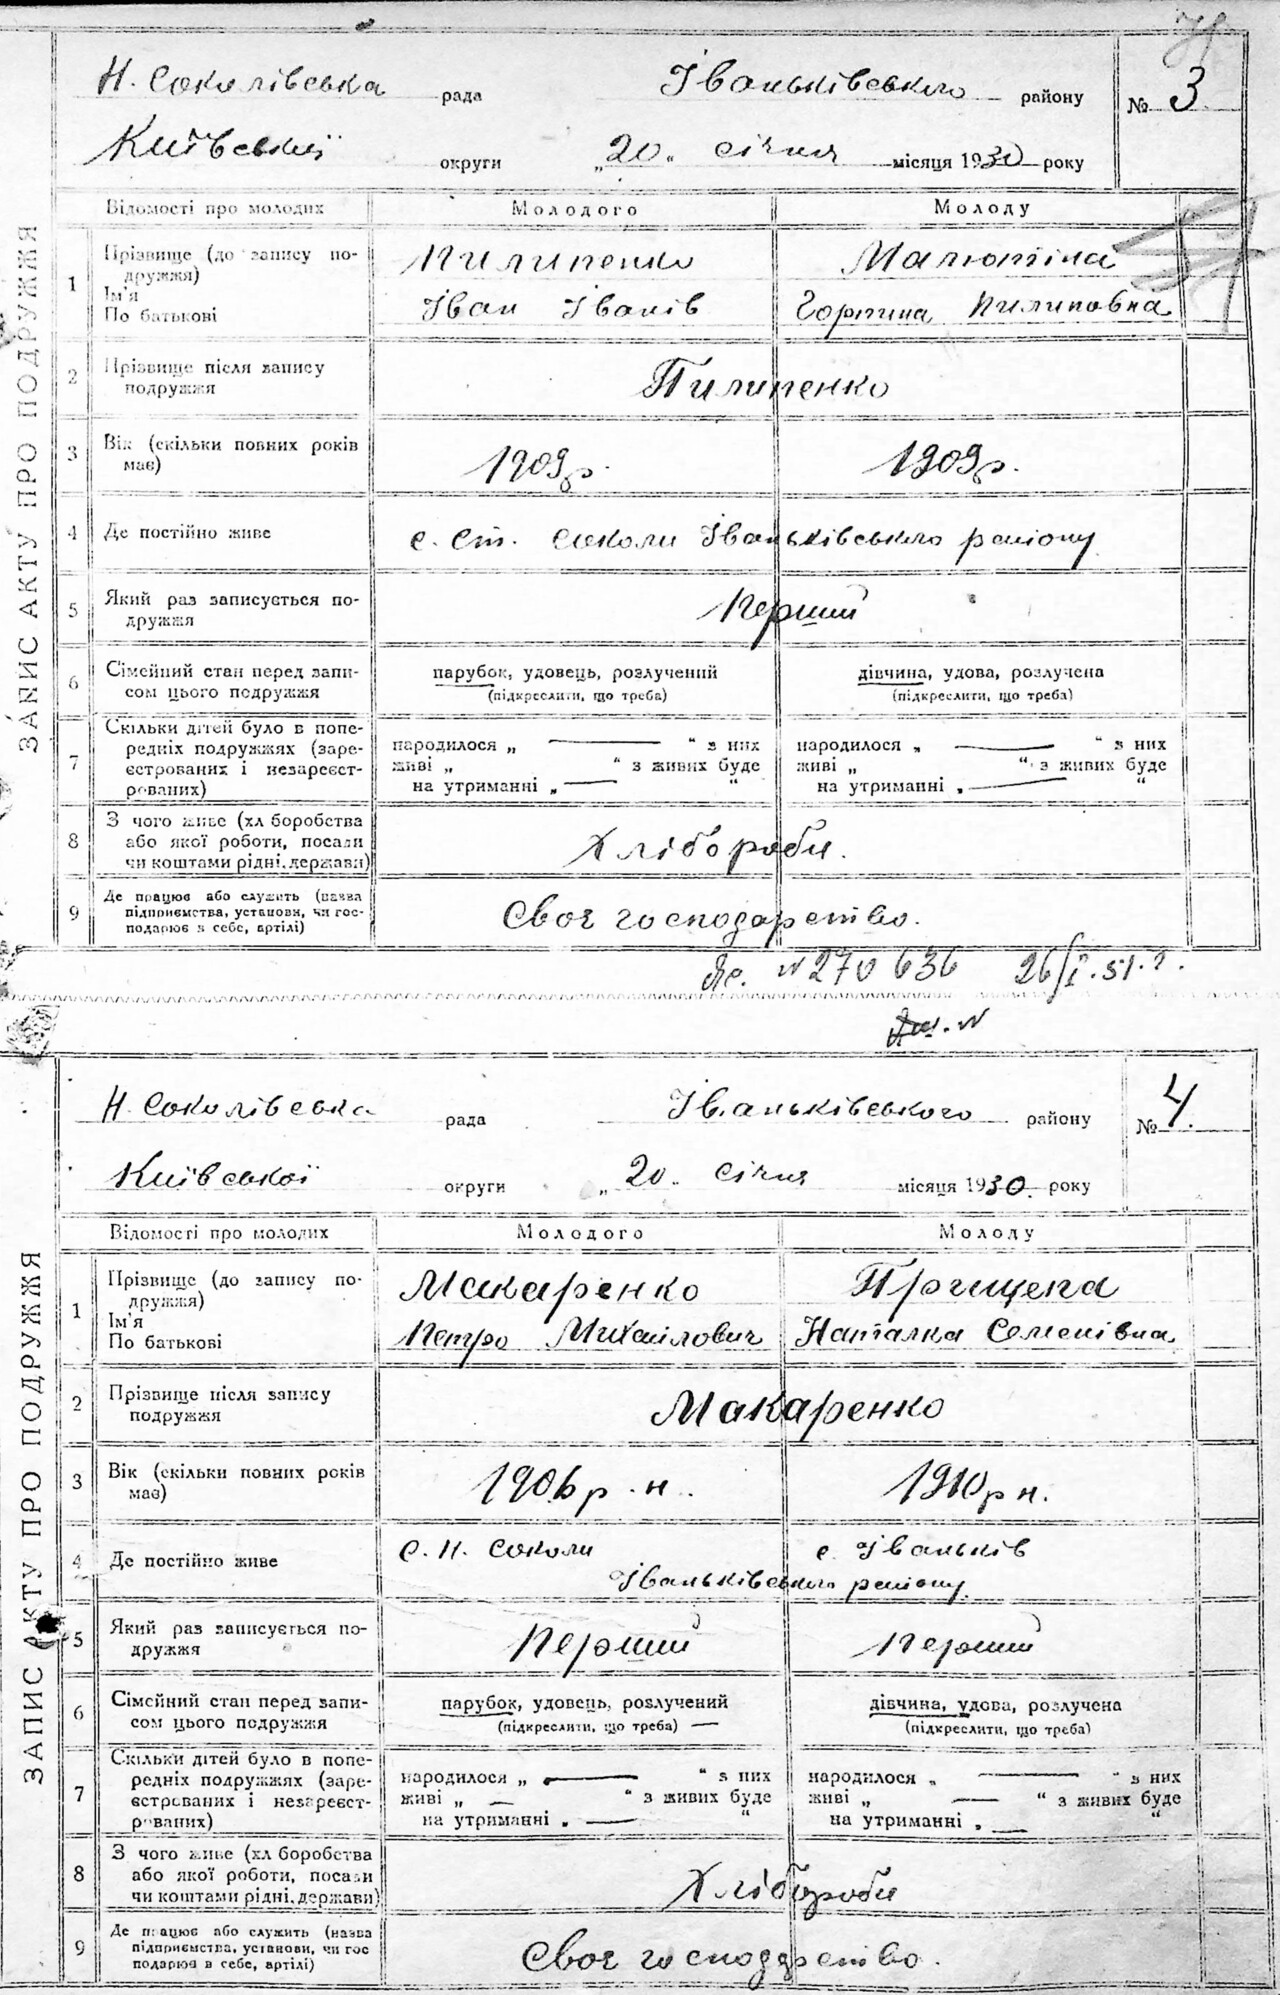 Н. Соколівська рада Іваньківського району № 3
Київський округи „20" січня місяця 1930 року
ЗАПИС АКТУ ПРО ПОДРУЖЖЯ
Відомості про молодих Молодого Молоду
1 Прізвище (до запису подружжя) Пилипенко Малютіна
Ім'я
По батькові Іван Іванів Горпина Пилиповна
2 Прізвище після запису
подружжя Пилипенко
3 Вік (скільки повних років
має) 1909 р. 1909 р.
4 Де постійно живе с. Ст. Соколи Іваньківського району
5 Який раз записується по-
дружжя Перший
6 Сімейний стан перед запи- парубок, удовець, розлучений дівчина, удова, розлучена
сом цього подружжя (підкреслити, що треба) (підкреслити, що треба)
7 Скільки дітей було в попе-
редніх подружжях (заре- народилося „ — " з них народилося „ — " з них
єстрованих і незареєст- живі „ " з живих буде живі „ " з живих буде
рованих) на утриманні „ — " на утриманні „ — "
8 З чого живе (хліборобства
або якої роботи, посади
чи коштами рідні, держави) Хлібороби.
9 Де працює або служить (назва
підприємства, установи, чи гос-
подарює в себе, артілі) Своє господарство.
№ 270636 26/I.51.г.
Н. Соколівська рада Іваньківського району № 4.
Київської округи „20" січня місяця 1930. року
ЗАПИС АКТУ ПРО ПОДРУЖЖЯ
Відомості про молодих Молодого Молоду
1 Прізвище (до запису по-
дружжя) Макаренко Прищепа
Ім'я
По батькові Петро Михайлович Наталка Семенівна
2 Прізвище після запису
подружжя Макаренко
3 Вік (скільки повних років
має) 1906 р. н. 1910 р н.
4 Де постійно живе с. Н. Соколи с. Іваньків
Іваньківського району
5 Який раз записується по-
дружжя Перший Перший
6 Сімейний стан перед запи- парубок, удовець, розлучений дівчина, удова, розлучена
сом цього подружжя (підкреслити, що треба) — (підкреслити, що треба)
7 Скільки дітей було в попе-
редніх подружжях (заре- народилося „ — " з них народилося „ — " з них
єстрованих і незареєст- живі „ — " з живих буде живі „ — " з живих буде
рованих) на утриманні „ — " на утриманні „ — "
8 З чого живе (хліборобства
або якої роботи, посади
чи коштами рідні, держави) Хлібороби
9 Де працює або служить (назва
підприємства, установи, чи гос
подарює в себе, артілі) Своє господарство.